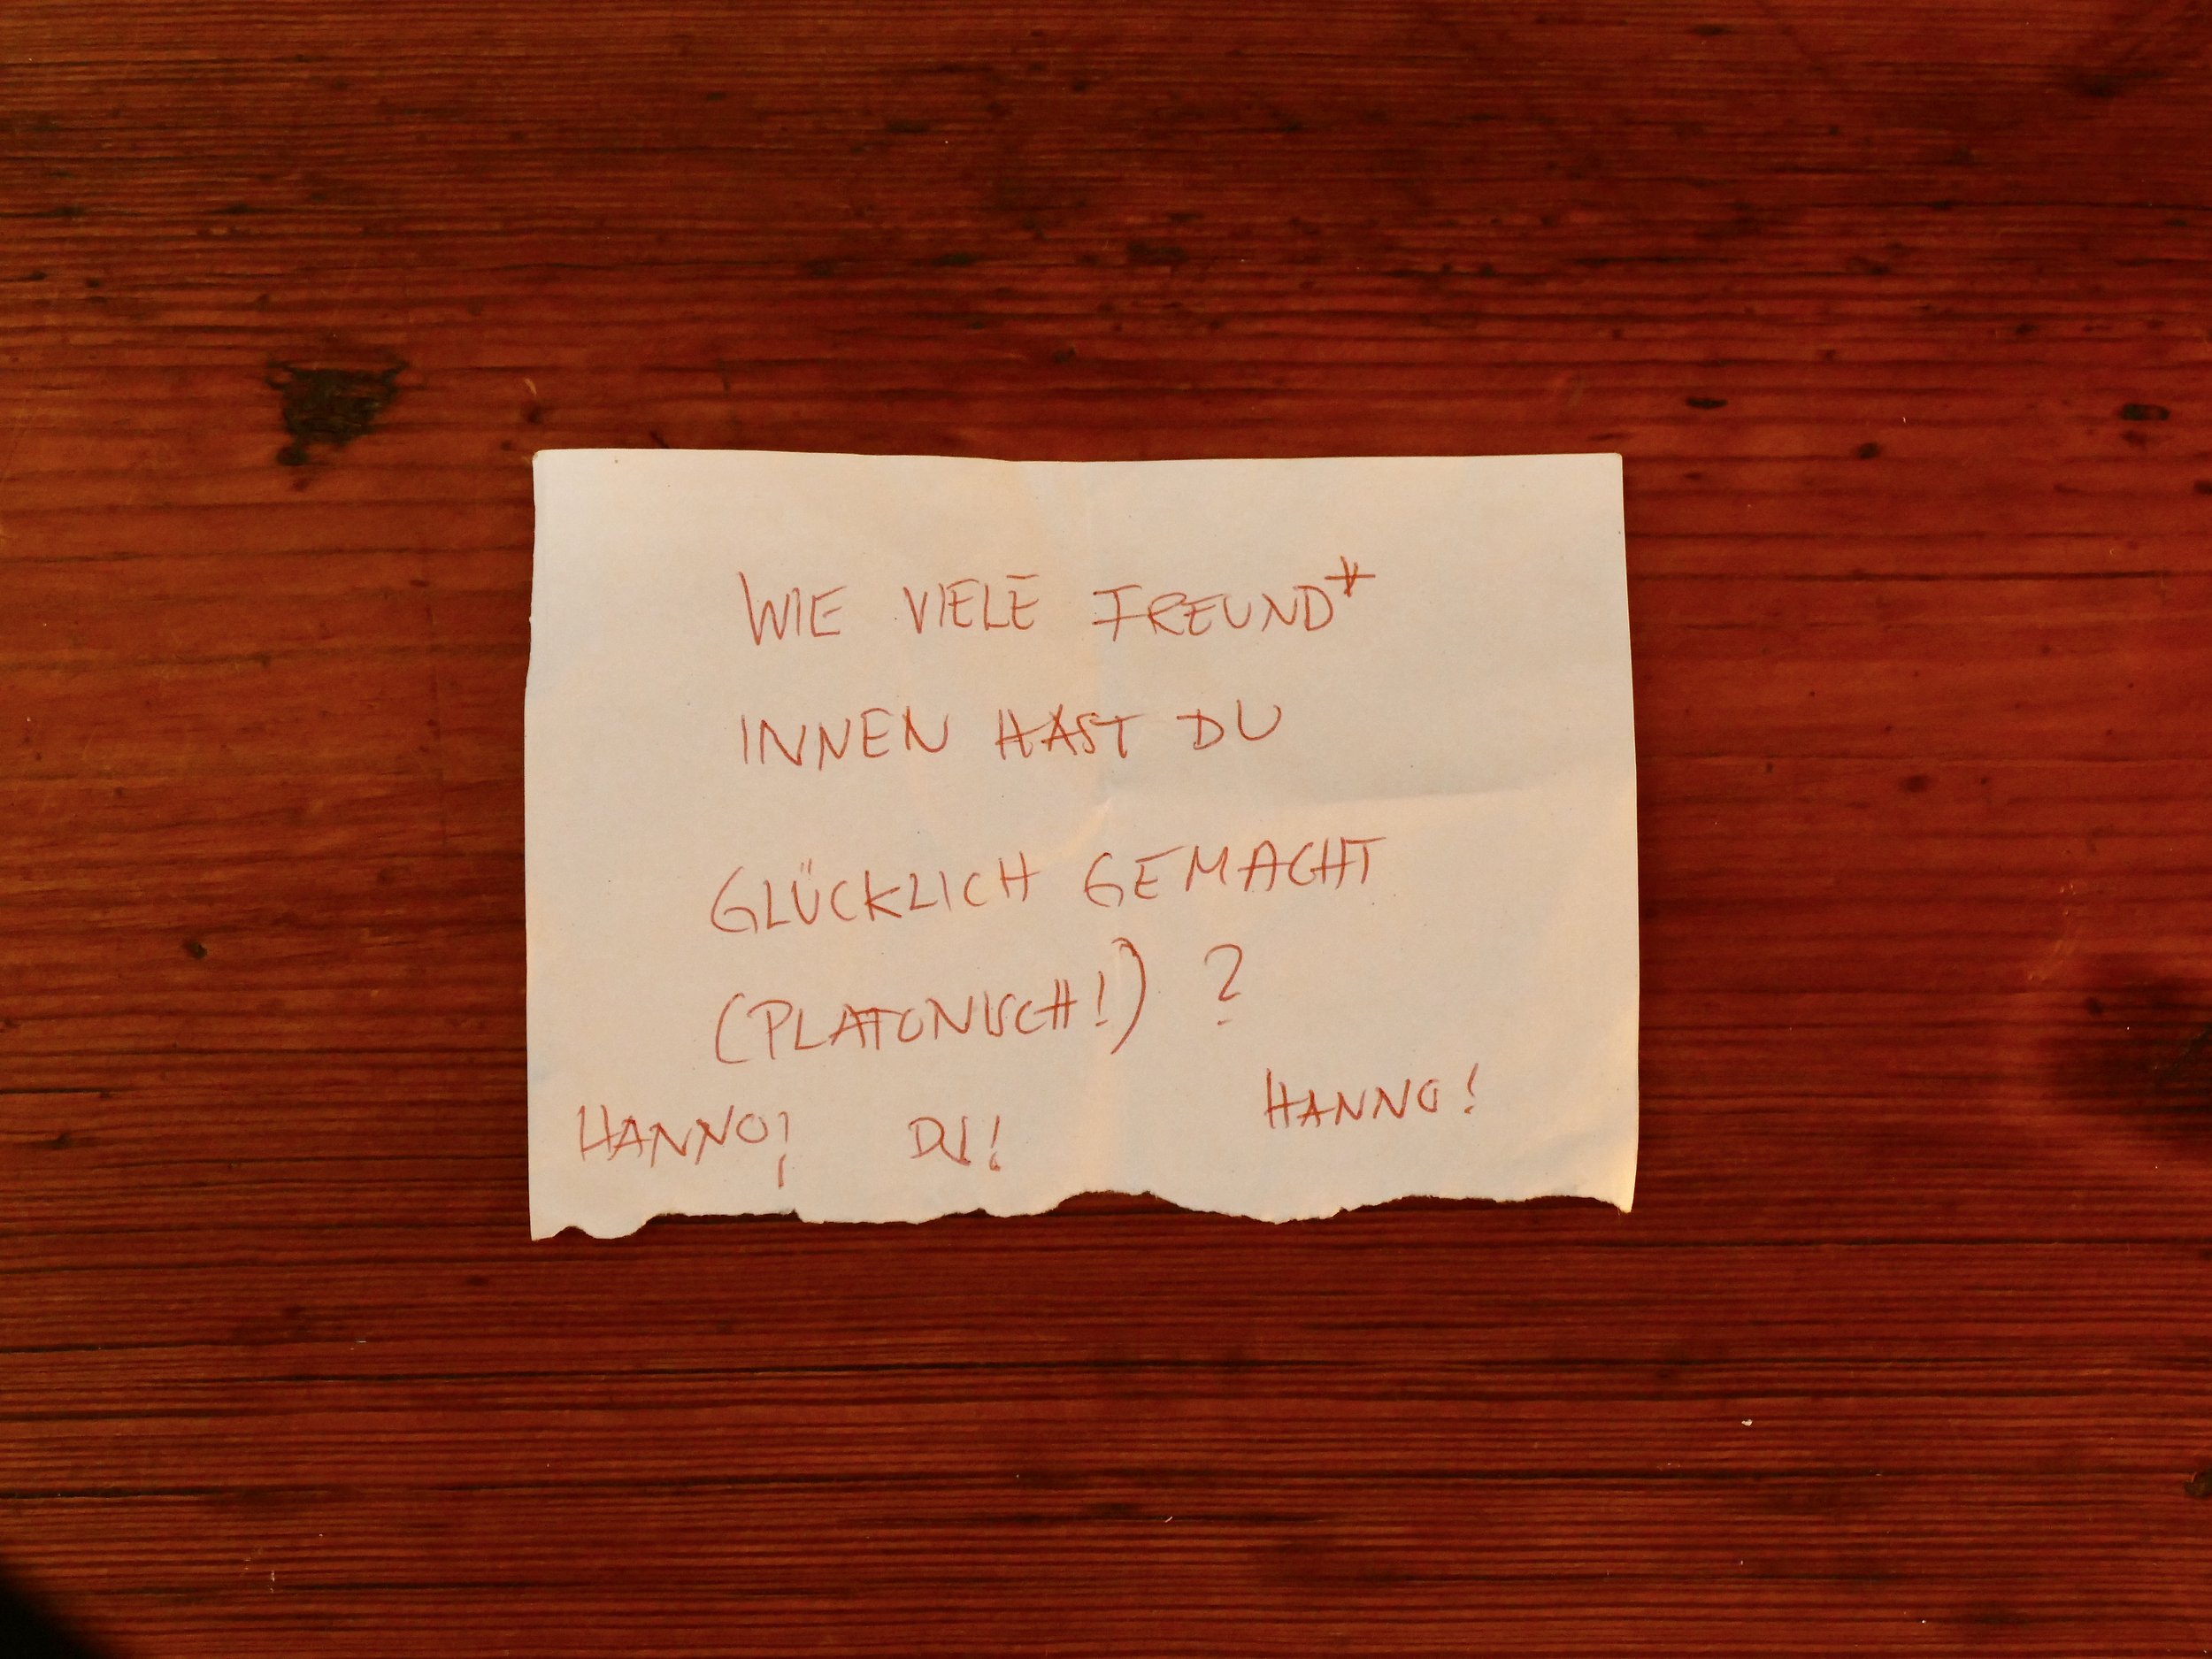 WIE VIELE FREUND*
INNEN HAST DU
GLÜCKLICH GEMACHT
(PLATONISCH!) ?
HANNO! DU! HANNO!